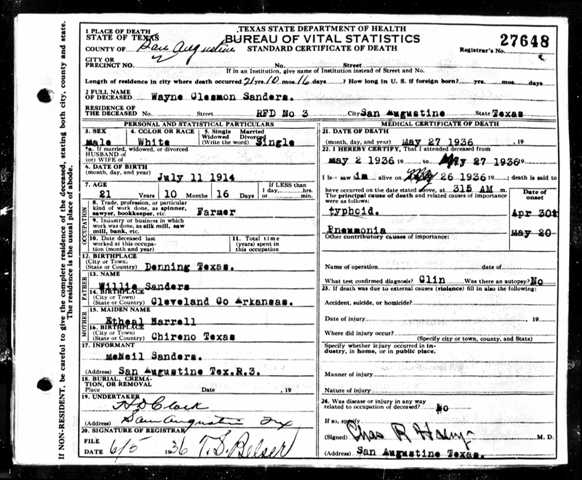 TEXAS STATE DEPARTMENT OF HEALTH
BUREAU OF VITAL STATISTICS
STANDARD CERTIFICATE OF DEATH
27648
Registrar's No.
1 PLACE OF DEATH
STATE OF TEXAS
COUNTY OF San Augustine
CITY OR
PRECINCT NO. No. Street
If in an Institution, give name of Institution instead of Street and No.
Length of residence in city where death occurred 21 yrs. 10 mos. 16 days ? How long in U. S. if foreign born? yrs. mos. days
2 FULL NAME
OF DECEASED Wayne Clesmon Sanders.
RESIDENCE OF
THE DECEASED No. Street RFD No 3 City San Augustine State Texas
PERSONAL AND STATISTICAL PARTICULARS
3. SEX
Male
4. COLOR OR RACE
White
5. Single
Married
Widowed
Divorced
(Write the word) Single
*a. If married, widowed, or divorced
HUSBAND of
(or) WIFE of
6. DATE OF BIRTH
(month, day, year) July 11 1914
7. AGE
21 Years 10 Months 16 Days
If LESS than
1 day, hrs.
or min.
8. Trade, profession, or particular
kind of work done, as spinner,
sawyer, bookkeeper, etc. Farmer
9. Industry or business in which
work was done, as silk mill, saw
mill, bank, etc.
10. Date deceased last worked
at this occupa-
tion (month and year)
11. Total time
(years) spent in
this occupation
12. BIRTHPLACE
(City or Town)
(State or Country) Denning Texas.
FATHER
13. NAME
Willie Sanders
14. BIRTHPLACE
(City or Town)
(State or Country) Cleveland Co Arkansas.
MOTHER
15. MAIDEN NAME
Etheal Harrell
16. BIRTHPLACE
(City or Town)
(State or Country) Chireno Texas
17. INFORMANT
McNeil Sanders.
(Address) San Augustine Tex.R.3.
18. BURIAL, CREMA-
TION, OR REMOVAL
Place Date , 19
19. UNDERTAKER
(Address) San Augustine Tex
20. SIGNATURE OF REGISTRAR
FILE
DATE 6/5 1936 T. S. Belser
MEDICAL CERTIFICATE OF DEATH
21. DATE OF DEATH
(month, day, and year) May 27 1936 , 19
22. I HEREBY CERTIFY, That I attended deceased from
May 2 1936 , to May 27 1936 19
I last saw him alive on May 26 1936, death is said to
have occurred on the date stated above, at 315 AM m.
The principal cause of death and related causes of importance
were as follows:
Date of
onset
typhoid. Apr 30t
Pneumonia May 20
Other contributory causes of importance:
Name of operation date of
What test confirmed diagnosis? Clin Was there an autopsy? No
23. If death was due to external causes (violence) fill in also the following:
Accident, suicide, or homicide?
Date of injury 19
Where did injury occur?
(Specify city or town, county, and State)
Specify whether injury occurred in In-
dustry, in home, or in public place.
Manner of injury
Nature of injury
24. Was disease or injury in any way
related to occupation of deceased? No
If so, specify
(Signed) Chas R M. D.
(Address) San Augustine Texas.
If NON-RESIDENT, be careful to give the complete residence of the deceased, stating both city, county and state.
The residence is the usual place of abode.